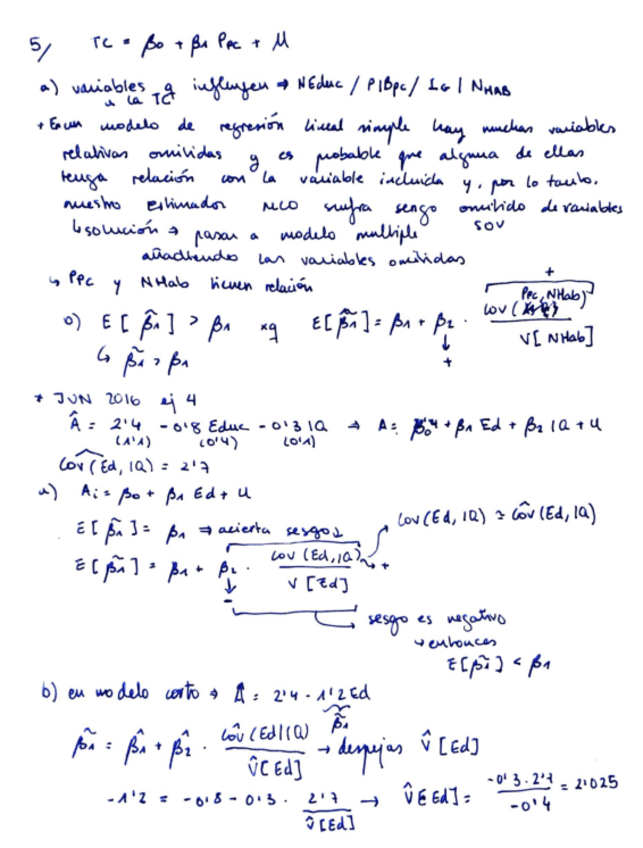 5/ TC = β0 + β1 Ppc + u
a) variables q influyen ⇒ NEduc / PIBpc / IG / NHAB
↳ la TC
* Es un modelo de regresión lineal simple hay muchas variables
relativas omitidas y es probable que alguna de ellas
tenga relación con la variable incluida y, por lo tanto,
nuestro estimador MCO sufra sesgo omitido de variables
SOV
↳ solución ⇒ pasar a modelo multiple
añadiendo las variables omitidas
↳ Ppc y NHab tienen relación
b) E[β̃1] > β1 xq E[β̃1] = β1 + β2 · Cov(Ppc, NHab) / V[NHab]
+
↓
+
↳ β̃1 > β1
* JUN 2016 ej 4
Â = 2'4 - 0'8 Educ - 0'3 IQ → A = β0 + β1 Ed + β2 IQ + u
(1'1) (0'4) (0'1)
Côv(Ed, IQ) = 2'7
a) Ai = β0 + β1 Ed + u
E[β̃1] = β1 ⇒ acierta sesgo Cov(Ed, IQ) ≃ Côv(Ed, IQ)
E[β̃1] = β1 + β2 · Cov(Ed, IQ) / V[Ed] → +
↓
-
→ sesgo es negativo
→ entonces
E[β̃1] < β1
b) en modelo corto → Ã = 2'4 - 1'2 Ed
β̃1
β̃1 = β̂1 + β̂2 · Côv(Ed, IQ) / V̂[Ed] → despejas V̂[Ed]
-1'2 = -0'8 - 0'3 · 2'7 / V̂[Ed] → V̂[Ed] = -0'3 · 2'7 / -0'4 = 2'025